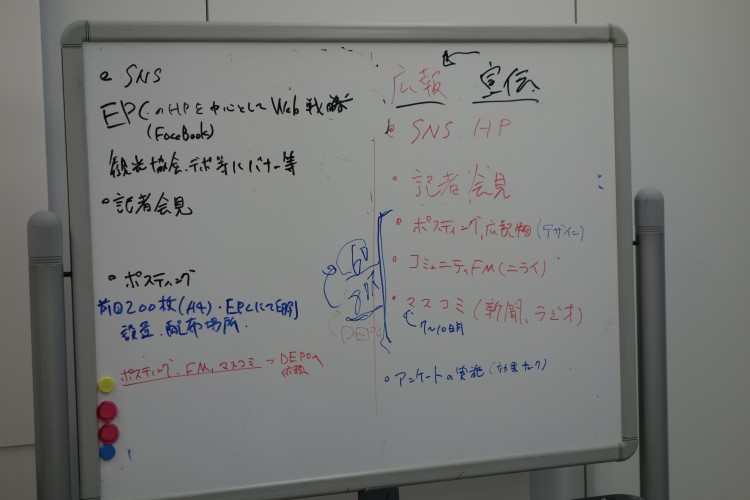 • SNS
EPCのHPを中心としてWeb戦略
(FaceBook)
観光協会、デポ等にバナー等
• 記者会見
• ポスティング
前回200枚(A4)・EPCにて印刷
設置、配布場所
ポスティング、FM、マスコミ → DEPOへ依頼
広報 ← 宣伝
• SNS HP
• 記者会見
• ポスティング、広報物(デザイン)
• コミュニティFM(ニライ)
• マスコミ(新聞、ラジオ)
7〜10日前
DEPO
• アンケートの実施(効果チェック)